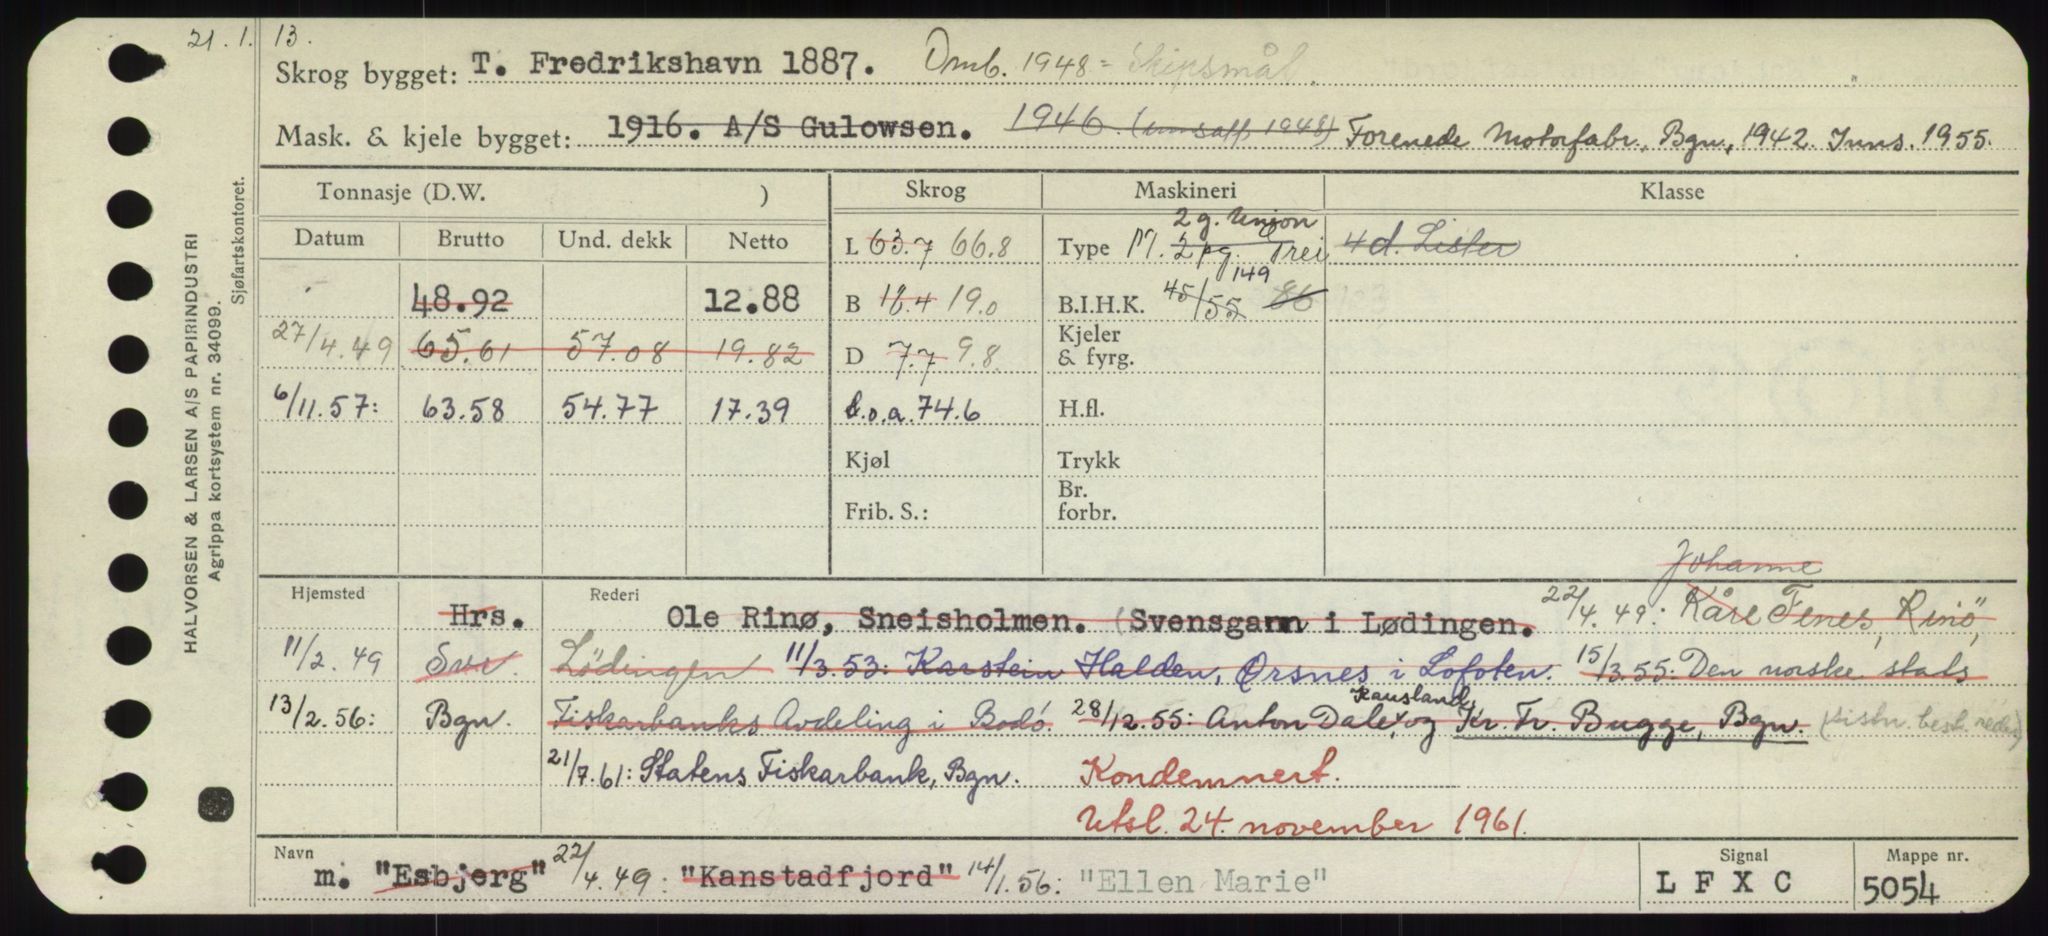 21.1. 13.
Skrog bygget: T. Fredrikshavn 1887. Omb. 1948 = Skipsmål.
Mask. & kjele bygget: 1916. A/S Gulowsen. 1946 (innsatt 1948) Forenede Motorfabr., Bgn., 1942. Inns. 1955.
Tonnasje (D.W. ) Skrog Maskineri Klasse
Datum Brutto Und. dekk Netto
L 63.7 66.8 Type M. 2 pg. 2 g. Union Trei 4 d. Lister
48.92 12.88 B 18.4 19.0 B.I.H.K. 45/55 149 86
27/4.49 65.61 57.08 19.82 D 7.7 9.8 Kjeler & fyrg.
6/11.57: 63.58 54.77 17.39 L.o.a. 74.6 H.fl.
Kjøl Trykk
Frib. S.: Br. forbr.
Hjemsted Rederi Johanne
Hrs. Ole Rinø, Sneisholmen. (Svensgam i Lødingen. 22/4.49: Kåre Fenes, Rinö,
11/2.49 Svr. Lödingen 11/3.53: Karstein Halden, Ørsnes i Lofoten. 15/3.55: Den norske stats
Rausland,
13/2.56: Bgn. Fiskarbanks Avdeling i Bodö. 28/12.55: Anton Dale, og Kr. Fr. Bugge, Bgn. (sistn. best. reder)
21/7.61: Statens Fiskarbank, Bgn. Kondemnert.
Utsl. 24. november 1961.
Navn Signal Mappe nr.
m. "Esbjerg" 22/4.49: "Kanstadfjord" 14/1.56: "Ellen Marie" L F X C 5054
HALVORSEN & LARSEN A/S PAPIRINDUSTRI
Agrippa kortsystem nr. 34099.
Sjøfartskontoret.